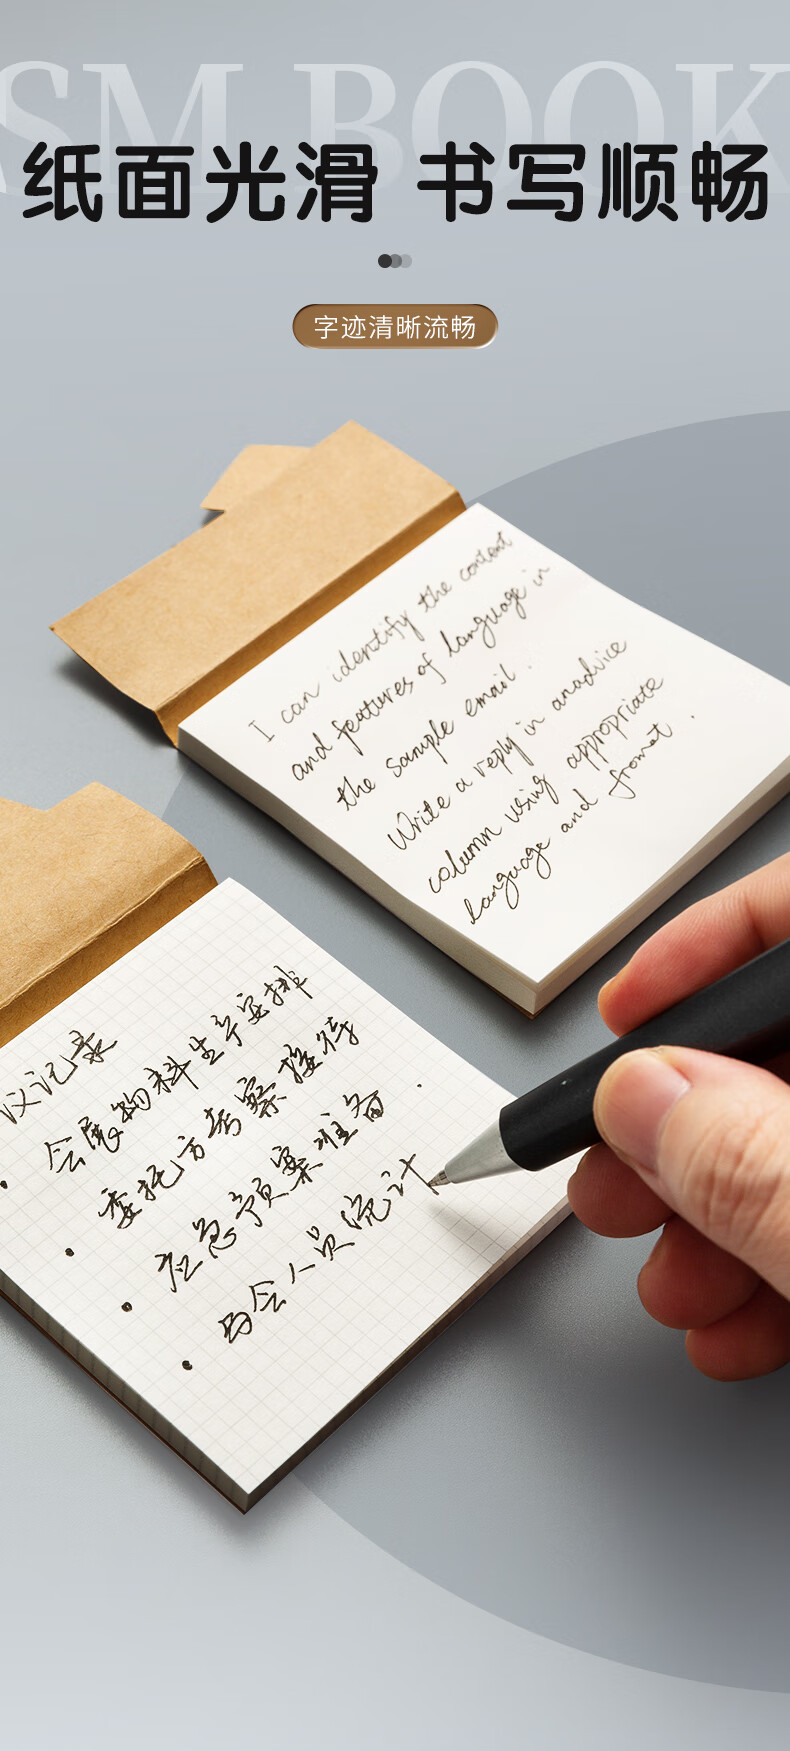 SM BOOK
纸面光滑 书写顺畅
字迹清晰流畅
I can identify the content
and features of language in
the sample email.
Write a reply in an advice
column using appropriate
language and fromat.
议记录
· 会展物料生产安排
· 委托方考察接待
· 应急预案准备.
· 与会人员统计